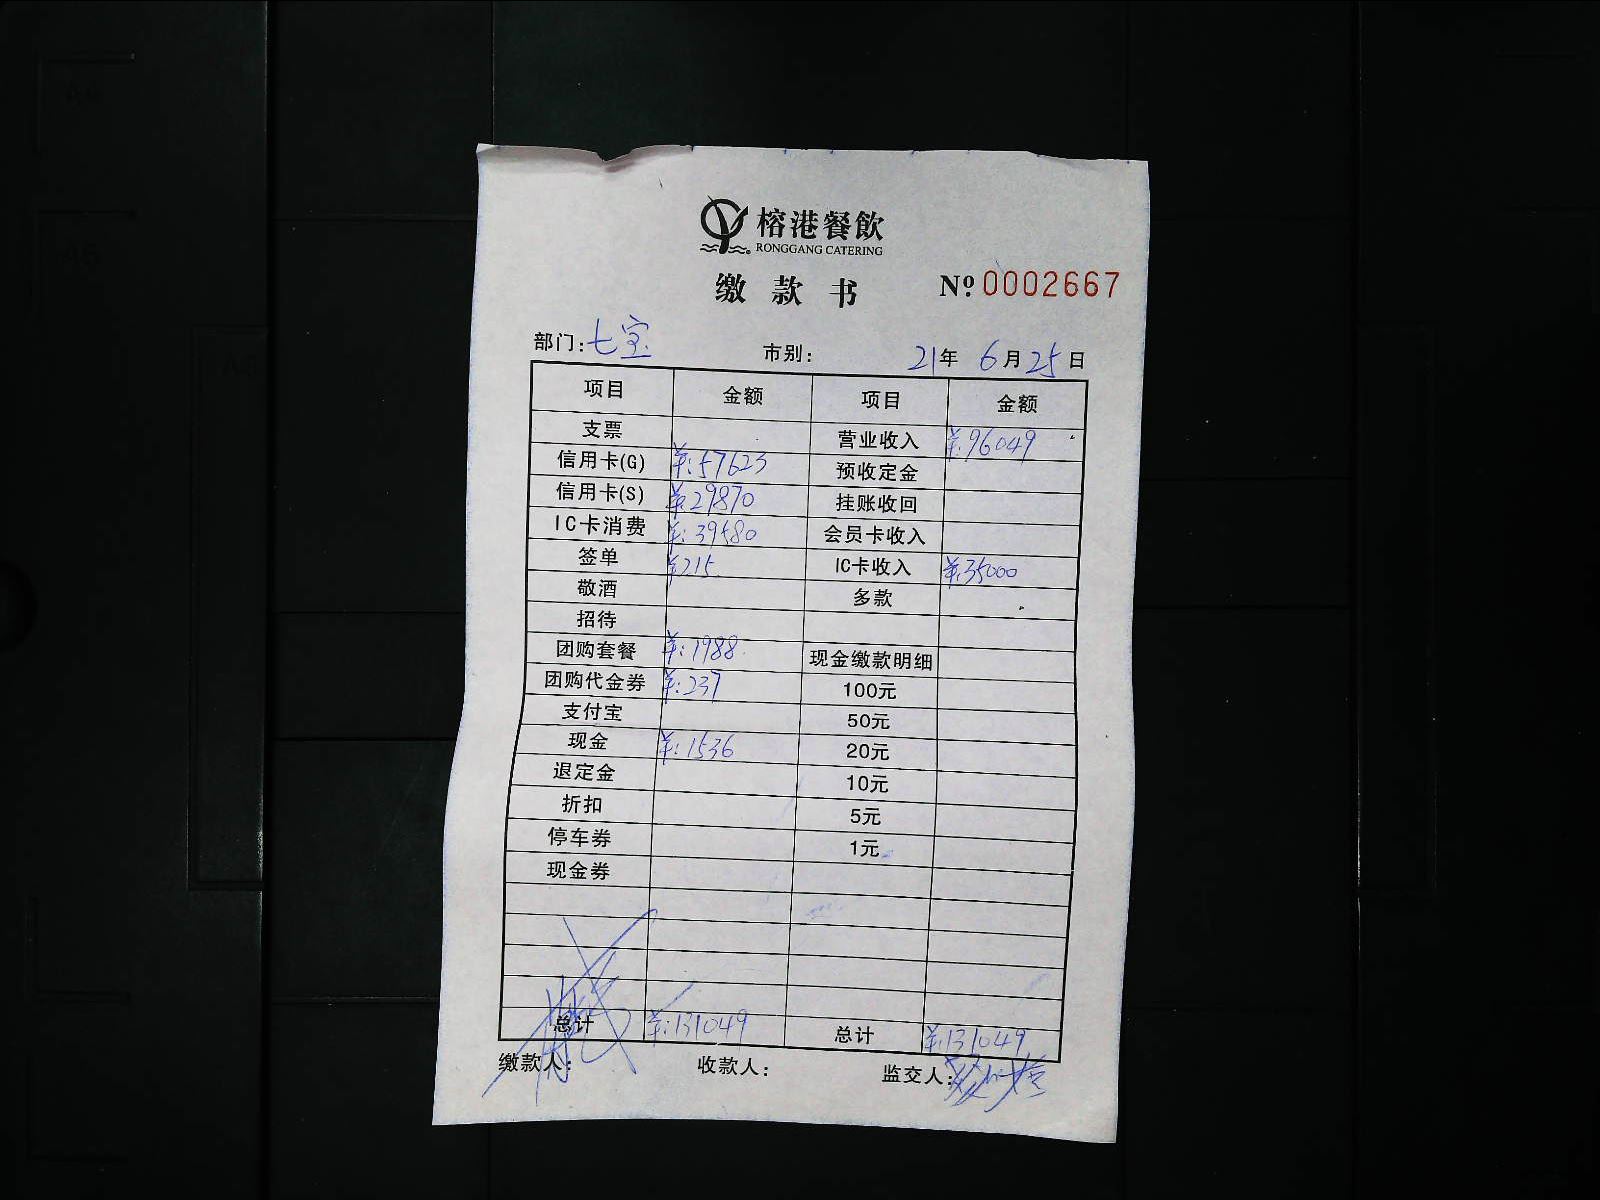 榕港餐飲
RONGGANG CATERING
缴款书 № 0002667
部门：七宝 市别： 21年 6月25日
项目 金额 项目 金额
支票 营业收入 ¥:96049
信用卡(G) ¥:57623 预收定金
信用卡(S) ¥:29870 挂账收回
IC卡消费 ¥:39580 会员卡收入
签单 ¥215 IC卡收入 ¥:35000
敬酒 多款
招待
团购套餐 ¥:1988 现金缴款明细
团购代金券 ¥:237 100元
支付宝 50元
现金 ¥:1536 20元
退定金 10元
折扣 5元
停车券 1元
现金券
总计 ¥:131049 总计 ¥:131049
缴款人： 收款人： 监交人：